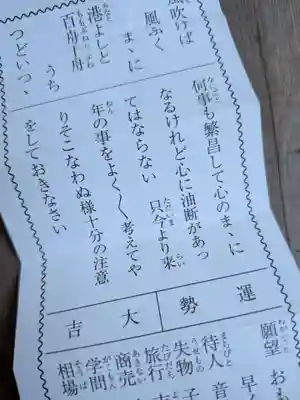 吹けば
風ふく
まゝに
港よしと
百舟千舟
うち
つどいつゝ
何事も繁昌して心のまゝに
なるけれど心に油断があっ
てはならない 只今より来
年の事をよく〳〵考えてや
りそこなわぬ様十分の注意
をしておきなさい
運勢 大吉
願望 おも
早
待人 音
失物 子
旅行
商売
学問
相場